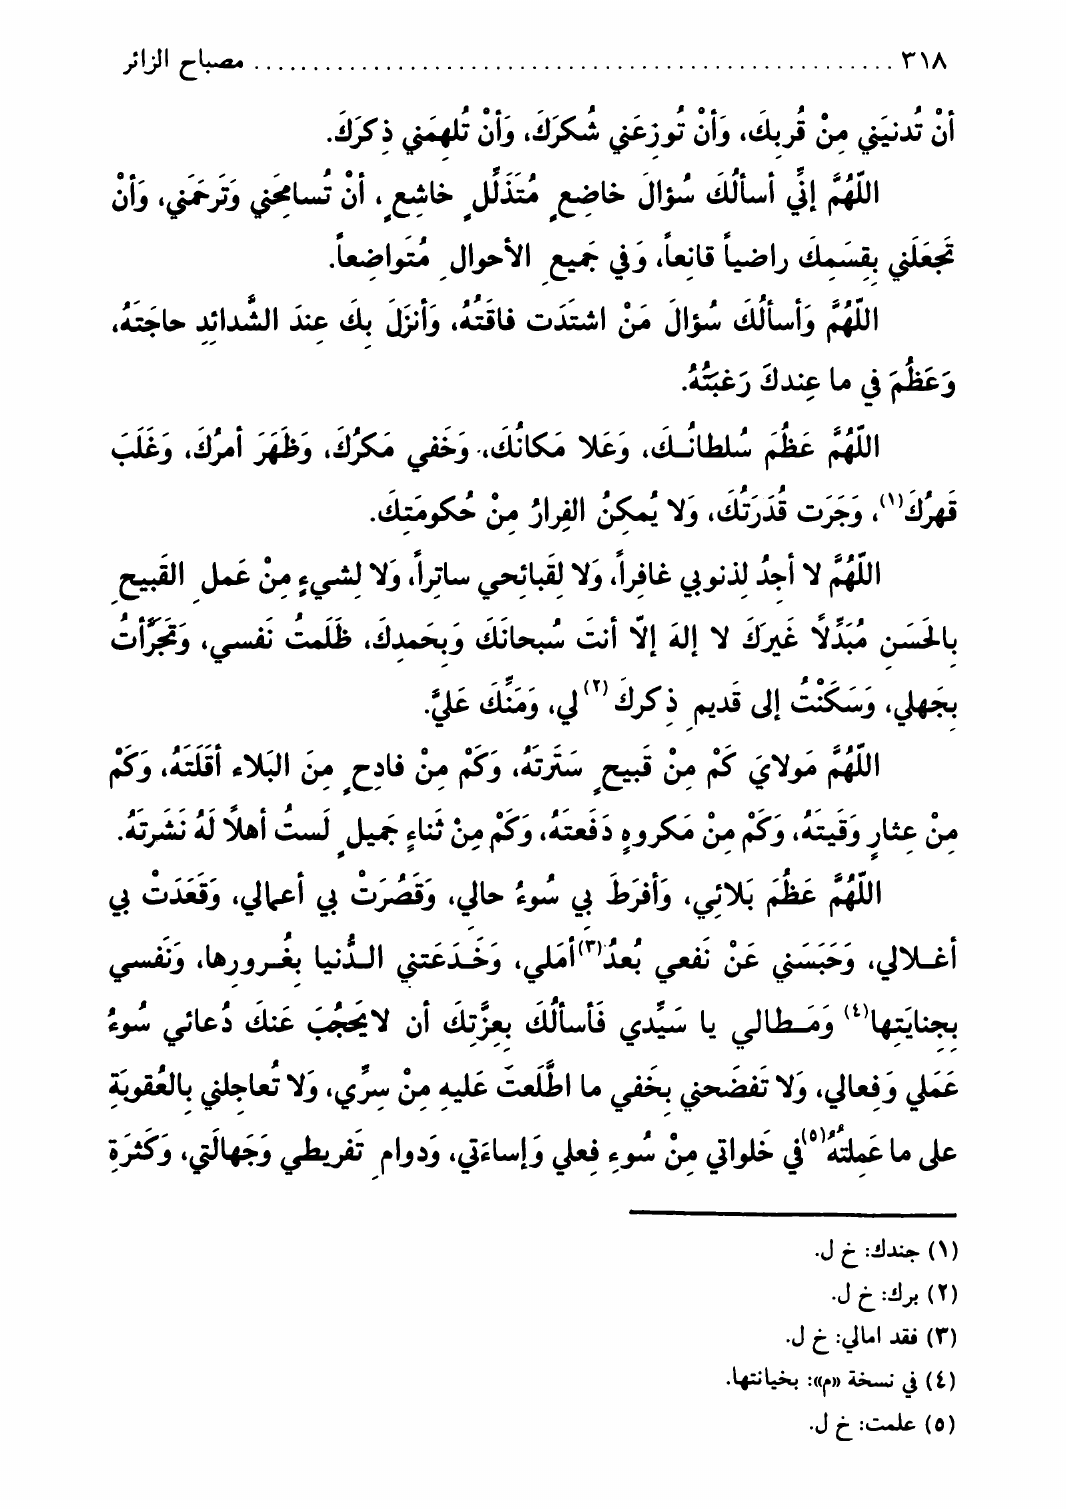 ٣١٨ ................................................ مصباح الزائر
أنْ تُدنيَني مِنْ قُربِكَ، وَأنْ تُوزِعَني شُكرَكَ، وَأنْ تُلهِمَني ذِكرَكَ.
اللّهُمَّ إنّي أسألُكَ سُؤالَ خاضِعٍ مُتَذَلِّلٍ خاشِعٍ، أنْ تُسامِحَني وَتَرحَمَني، وَأنْ
تَجعَلَني بِقِسَمِكَ راضياً قانِعاً، وَفي جَميعِ الأحوالِ مُتَواضِعاً.
اللّهُمَّ وَأسألُكَ سُؤالَ مَنْ اشتَدَت فاقَتُهُ، وَأنزَلَ بِكَ عِندَ الشَّدائدِ حاجَتَهُ،
وَعَظُمَ في ما عِندكَ رَغبَتُهُ.
اللّهُمَّ عَظُمَ سُلطانُـكَ، وَعَلا مَكانُكَ، وَخَفي مَكرُكَ، وَظَهَرَ أمرُكَ، وَغَلَبَ
قَهرُكَ(١)، وَجَرَت قُدَرَتُكَ، وَلا يُمكِنُ الفِرارُ مِنْ حُكومَتِكَ.
اللّهُمَّ لا أجِدُ لِذنوبي غافِراً، وَلا لِقَبائحي ساتِراً، وَلا لِشيءٍ مِنْ عَملِ القَبيحِ
بِالحَسَنِ مُبَدِّلاً غَيرَكَ لا إلهَ إلّا أنتَ سُبحانَكَ وَبِحَمدِكَ، ظَلَمتُ نَفسي، وَتَجَرَّأتُ
بِجَهلي، وَسَكَنْتُ إلى قَديمِ ذِكركَ(٢) لي، وَمَنِّكَ عَليَّ.
اللّهُمَّ مَولايَ كَمْ مِنْ قَبيحٍ سَتَرتَهُ، وَكَمْ مِنْ فادِحٍ مِنَ البَلاء أقَلتَهُ، وَكَمْ
مِنْ عِثارٍ وَقَيتَهُ، وَكَمْ مِنْ مَكروهٍ دَفَعتَهُ، وَكَمْ مِنْ ثَناءٍ جَميلٍ لَستُ أهلاً لَهُ نَشَرتَهُ.
اللّهُمَّ عَظُمَ بَلائِي، وَأفرَطَ بي سُوءُ حالي، وَقَصُرَتْ بي أعمالي، وَقَعَدَتْ بي
أغـلالي، وَحَبَسَني عَنْ نَفعي بُعدُ(٣) أمَلي، وَخَـدَعَتني الـدُّنيا بِغُـرورِها، وَنَفسي
بِجِنايَتِها(٤) وَمَـطالي يا سَيِّدي فَأسألُكَ بِعِزَّتِكَ أن لايَحجُبَ عَنكَ دُعائي سُوءُ
عَمَلي وَفِعالي، وَلا تَفضَحني بِخَفي ما اطَّلَعتَ عَليهِ مِنْ سِرِّي، وَلا تُعاجِلني بِالعُقوبَةِ
على ما عَمِلتُهُ(٥) في خَلواتي مِنْ سُوءِ فِعلي وَإساءَتي، وَدوامِ تَفريطي وَجَهالَتي، وَكَثرَةِ
(١) جندك: خ ل.
(٢) برك: خ ل.
(٣) فقد امالي: خ ل.
(٤) في نسخة «م»: بخيانتها.
(٥) علمت: خ ل.